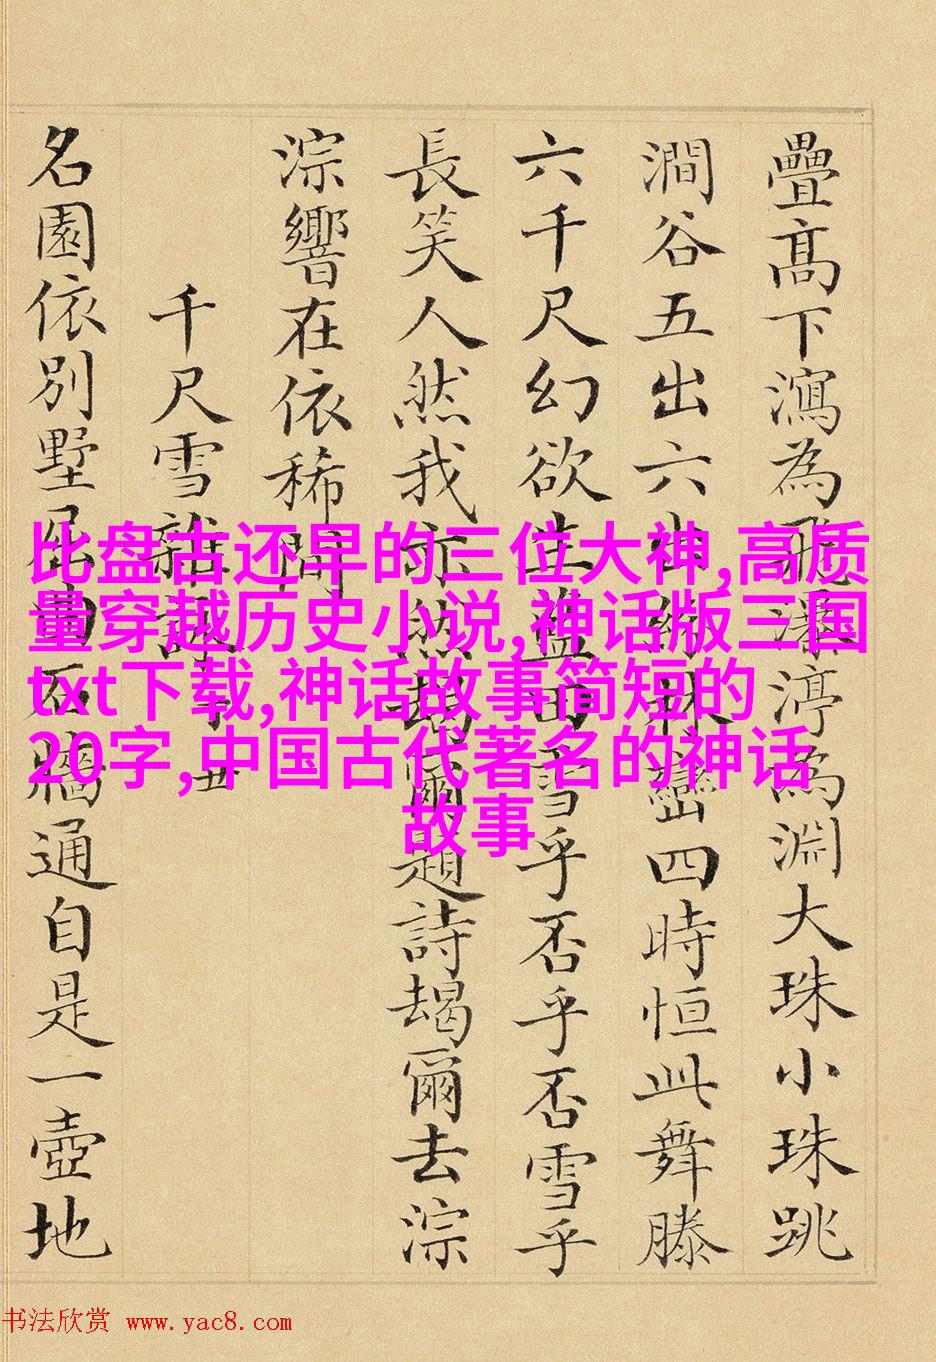 疊髙下瀉為飛瀑渟為淵大珠小珠跳
澗谷五出六出紛林巒四時恒此舞滕
六千尺幻欲生雪乎否乎否雪乎
長笑人然我亦然朅爾題詩朅爾去淙
淙響在依稀間
千尺雪雜詠丑
名園依別墅屈曲石牆通自是一壺地
比盘古还早的三位大神,高质
量穿越历史小说,神话版三国
txt下载,神话故事简短的
20字,中国古代著名的神话
故事
书法欣赏 www.yac8.com